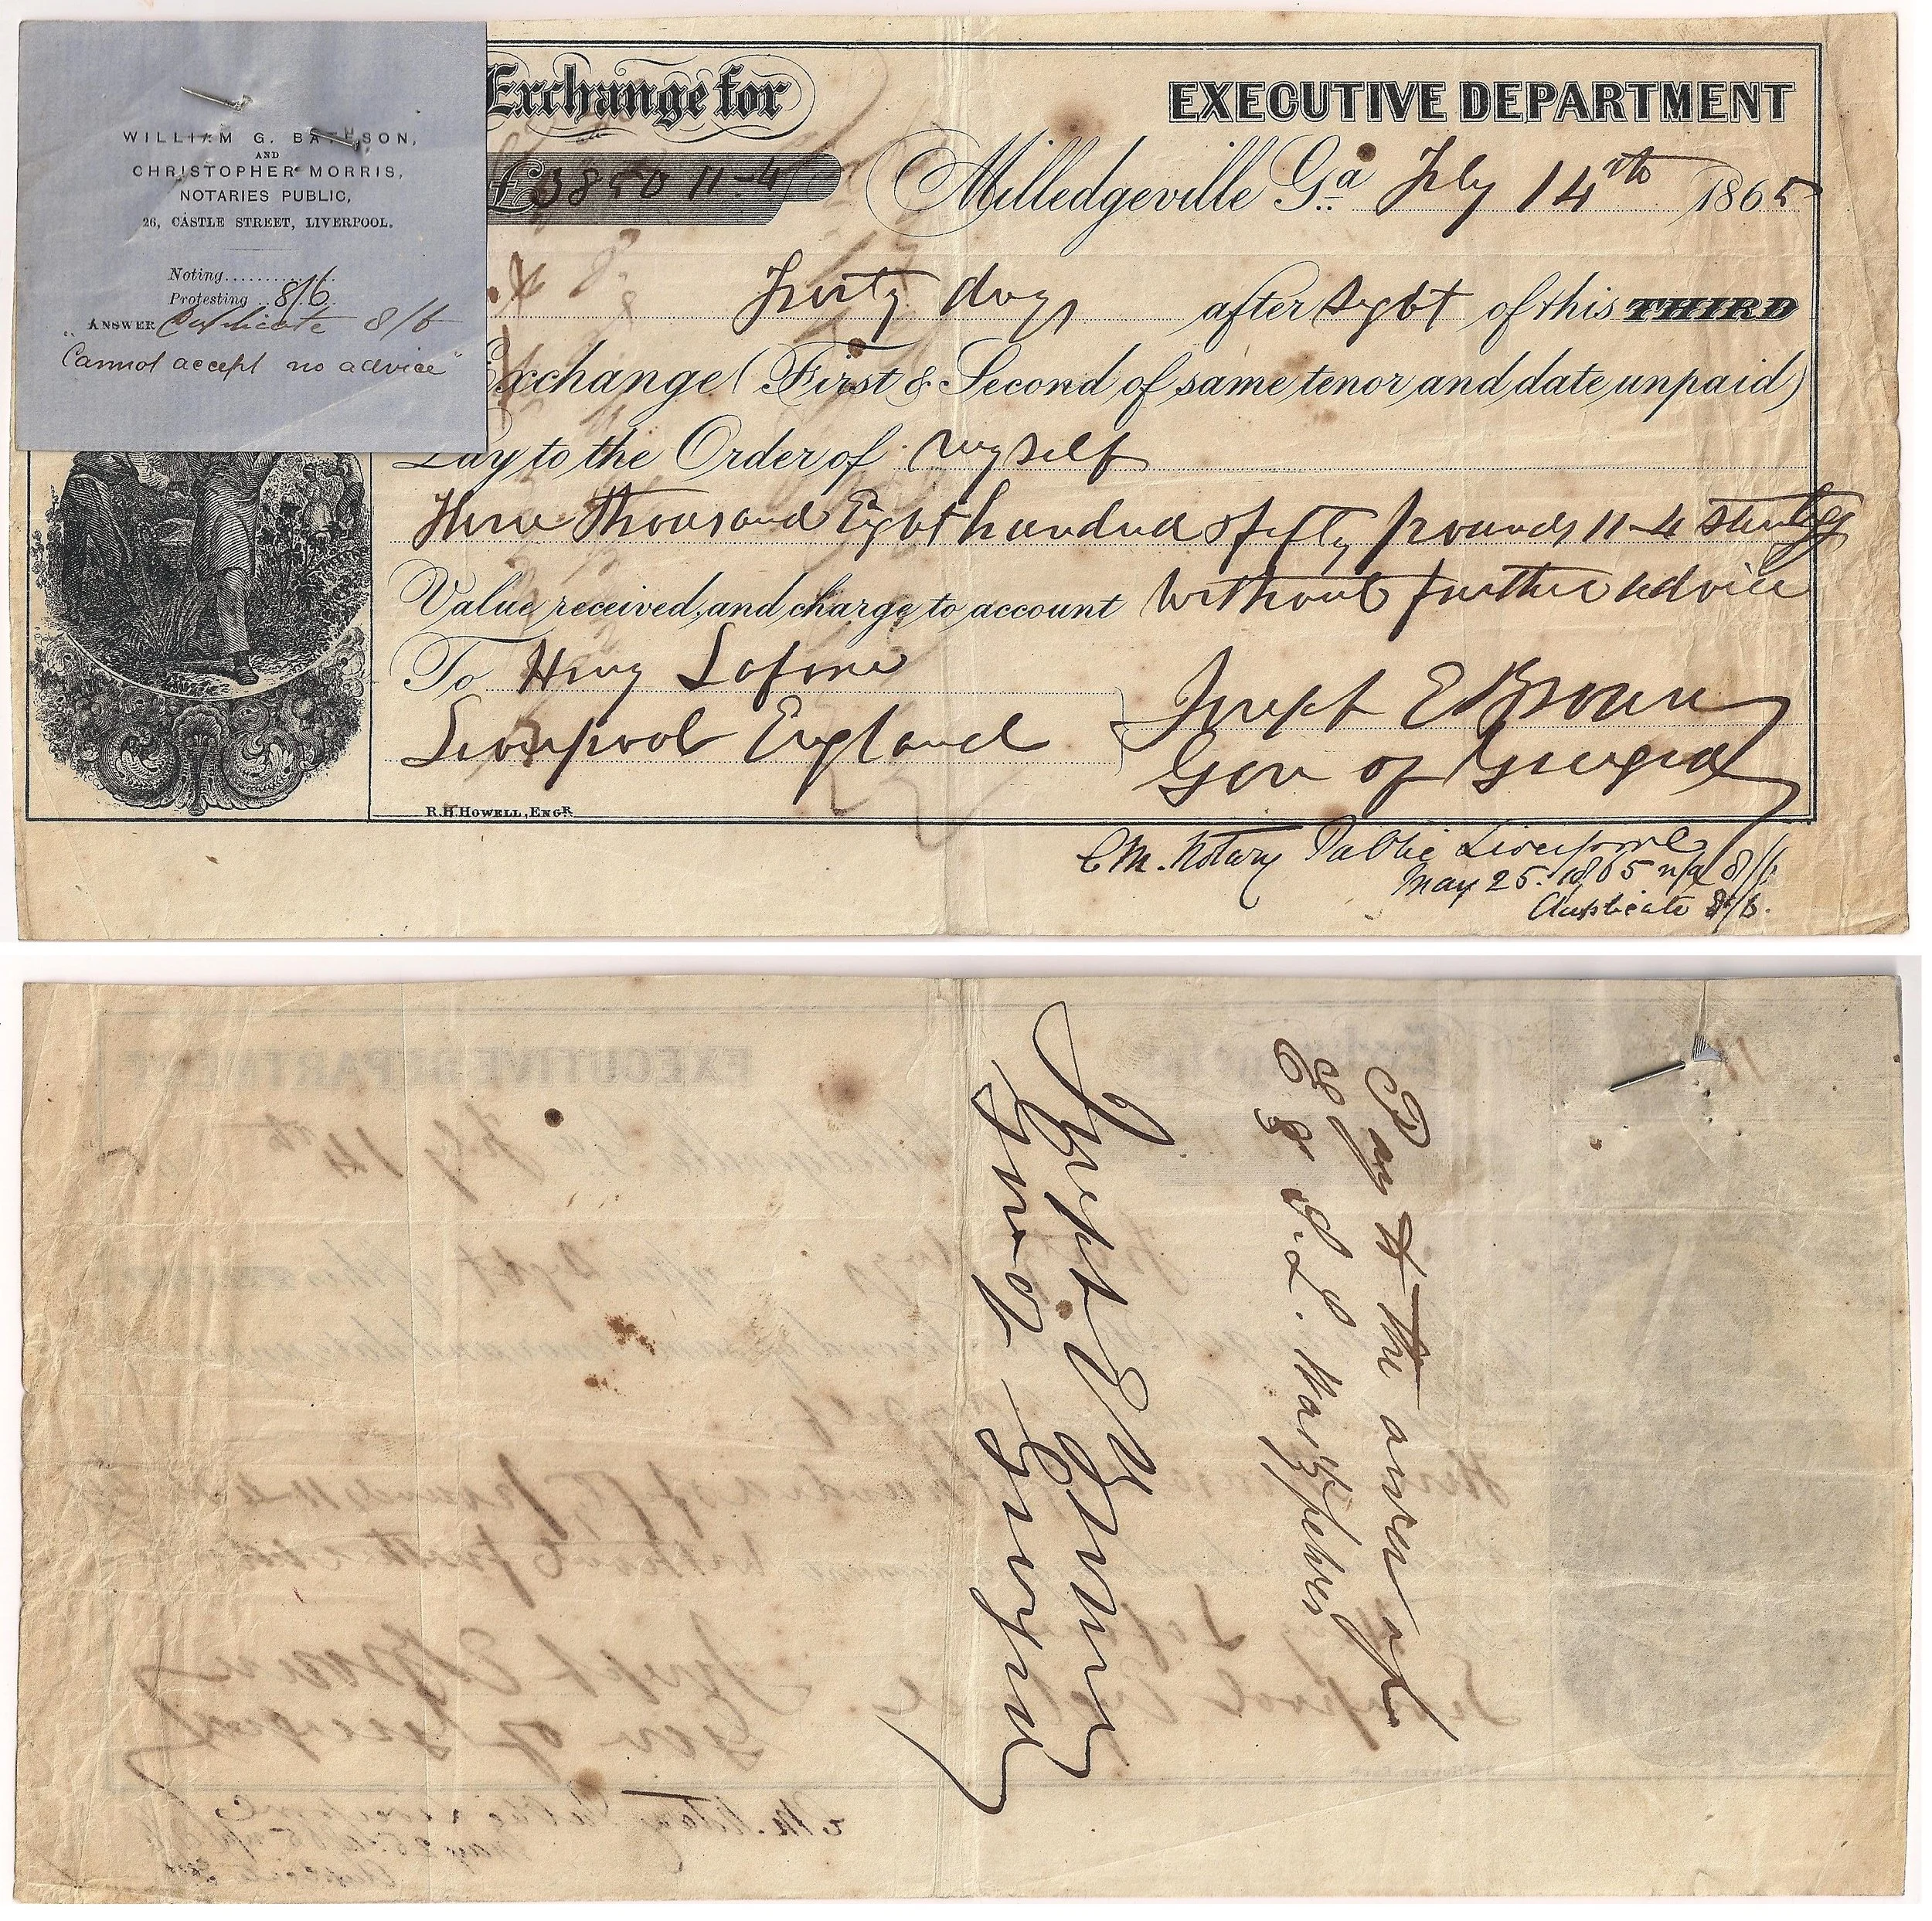 WILLIAM G. BATESON,
AND
CHRISTOPHER MORRIS,
NOTARIES PUBLIC,
26, CASTLE STREET, LIVERPOOL.
Noting............
Protesting .. 8/6
ANSWER Duplicate 8/6
"Cannot accept no advice"
Exchange for
£3850 11-4
EXECUTIVE DEPARTMENT
Milledgeville Ga. Feby 14th 1865
days after sight of this THIRD
Exchange (First & Second of same tenor and date unpaid)
Pay to the Order of myself
Three thousand Eight hundred & fifty pounds 11-4 sterling
Value received, and charge to account without further advice
To Henry Lafone
Liverpool England
Joseph E Brown
Gov of Georgia
R.H. HOWELL, ENGR.
C.M. Notary Public Liverpool
May 25. 1865 n/a 8/6
Duplicate 8/6.
Pay to the order of
Joseph E Brown
Gov of Georgia